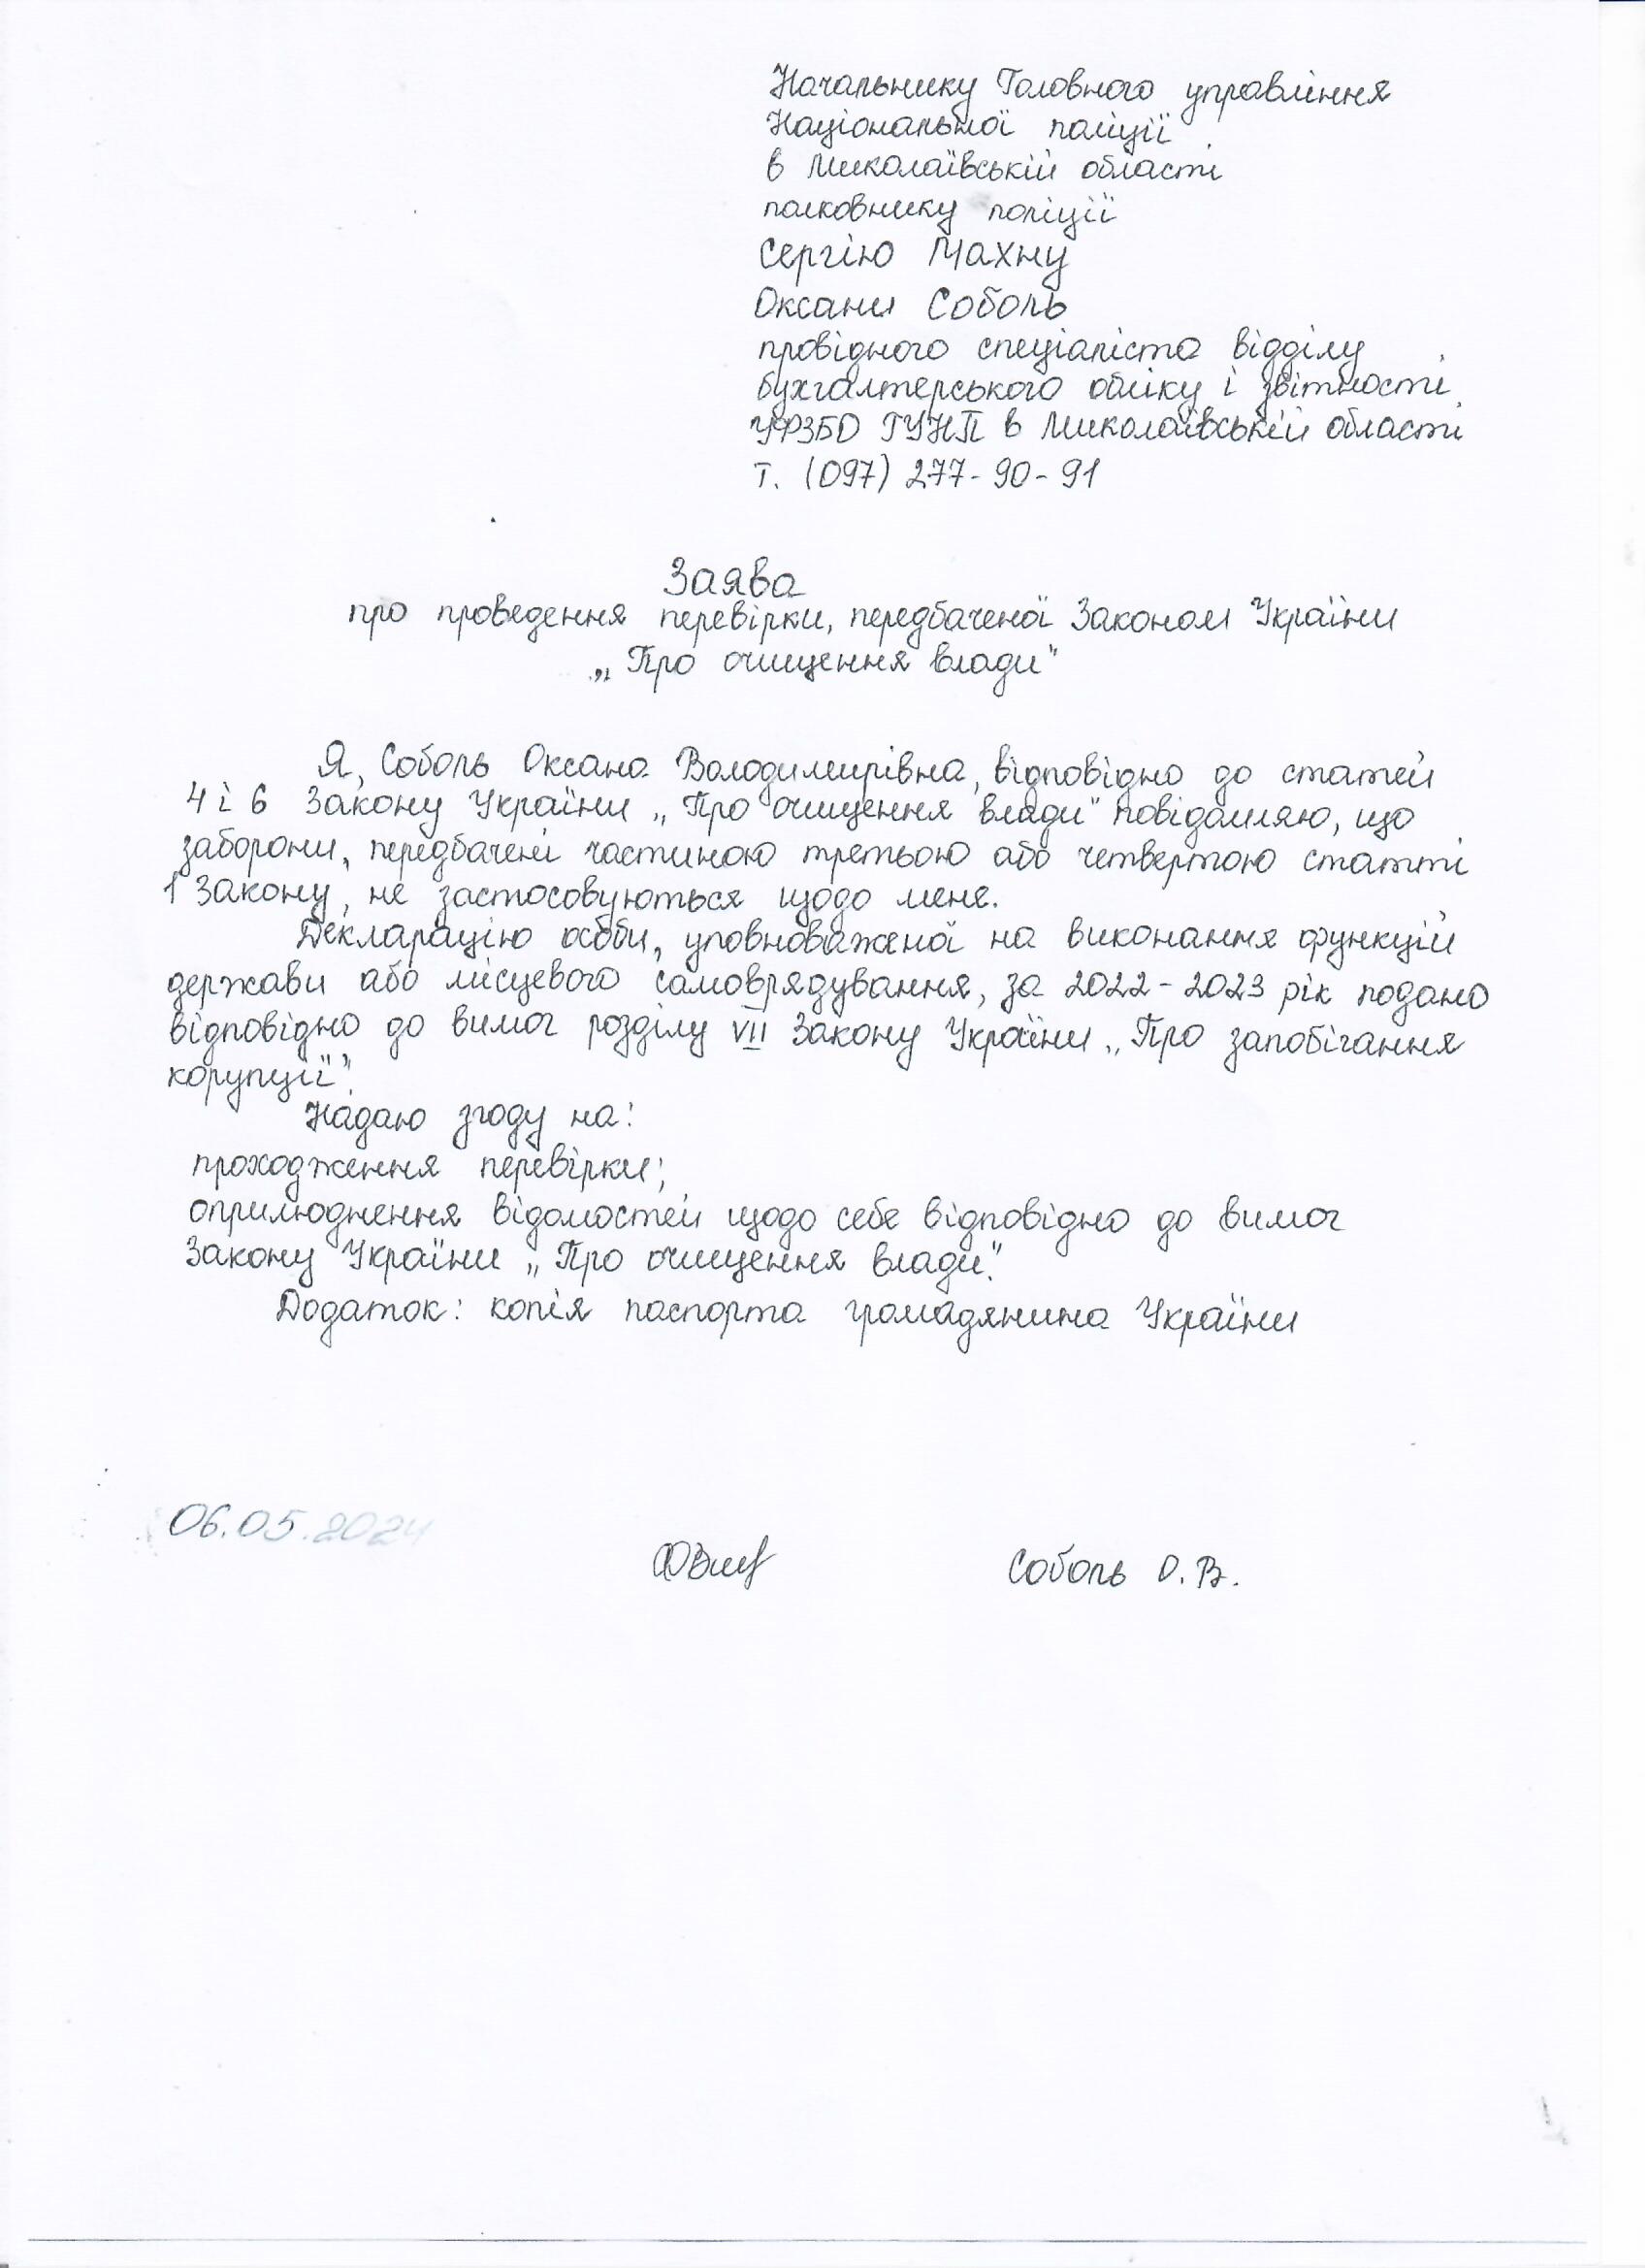 Начальнику Головного управління
Національної поліції
в Миколаївській області
полковнику поліції
Сергію Махну
Оксани Соболь
провідного спеціаліста відділу
бухгалтерського обліку і звітності
УФЗБО ГУНП в Миколаївській області
т. (097) 277-90-91
Заява
про проведення перевірки, передбаченої Законом України
„Про очищення влади"
Я, Соболь Оксана Володимирівна, відповідно до статей
4 і 6 Закону України „Про очищення влади" повідомляю, що
заборони, передбачені частиною третьою або четвертою статті
1 Закону, не застосовуються щодо мене.
Декларацію особи, уповноваженої на виконання функцій
держави або місцевого самоврядування, за 2022-2023 рік подано
відповідно до вимог розділу VII Закону України „Про запобігання
корупції".
Надаю згоду на:
проходження перевірки;
оприлюднення відомостей щодо себе відповідно до вимог
Закону України „Про очищення влади".
Додаток: копія паспорта громадянина України
06.05.2024
Соболь О.В.